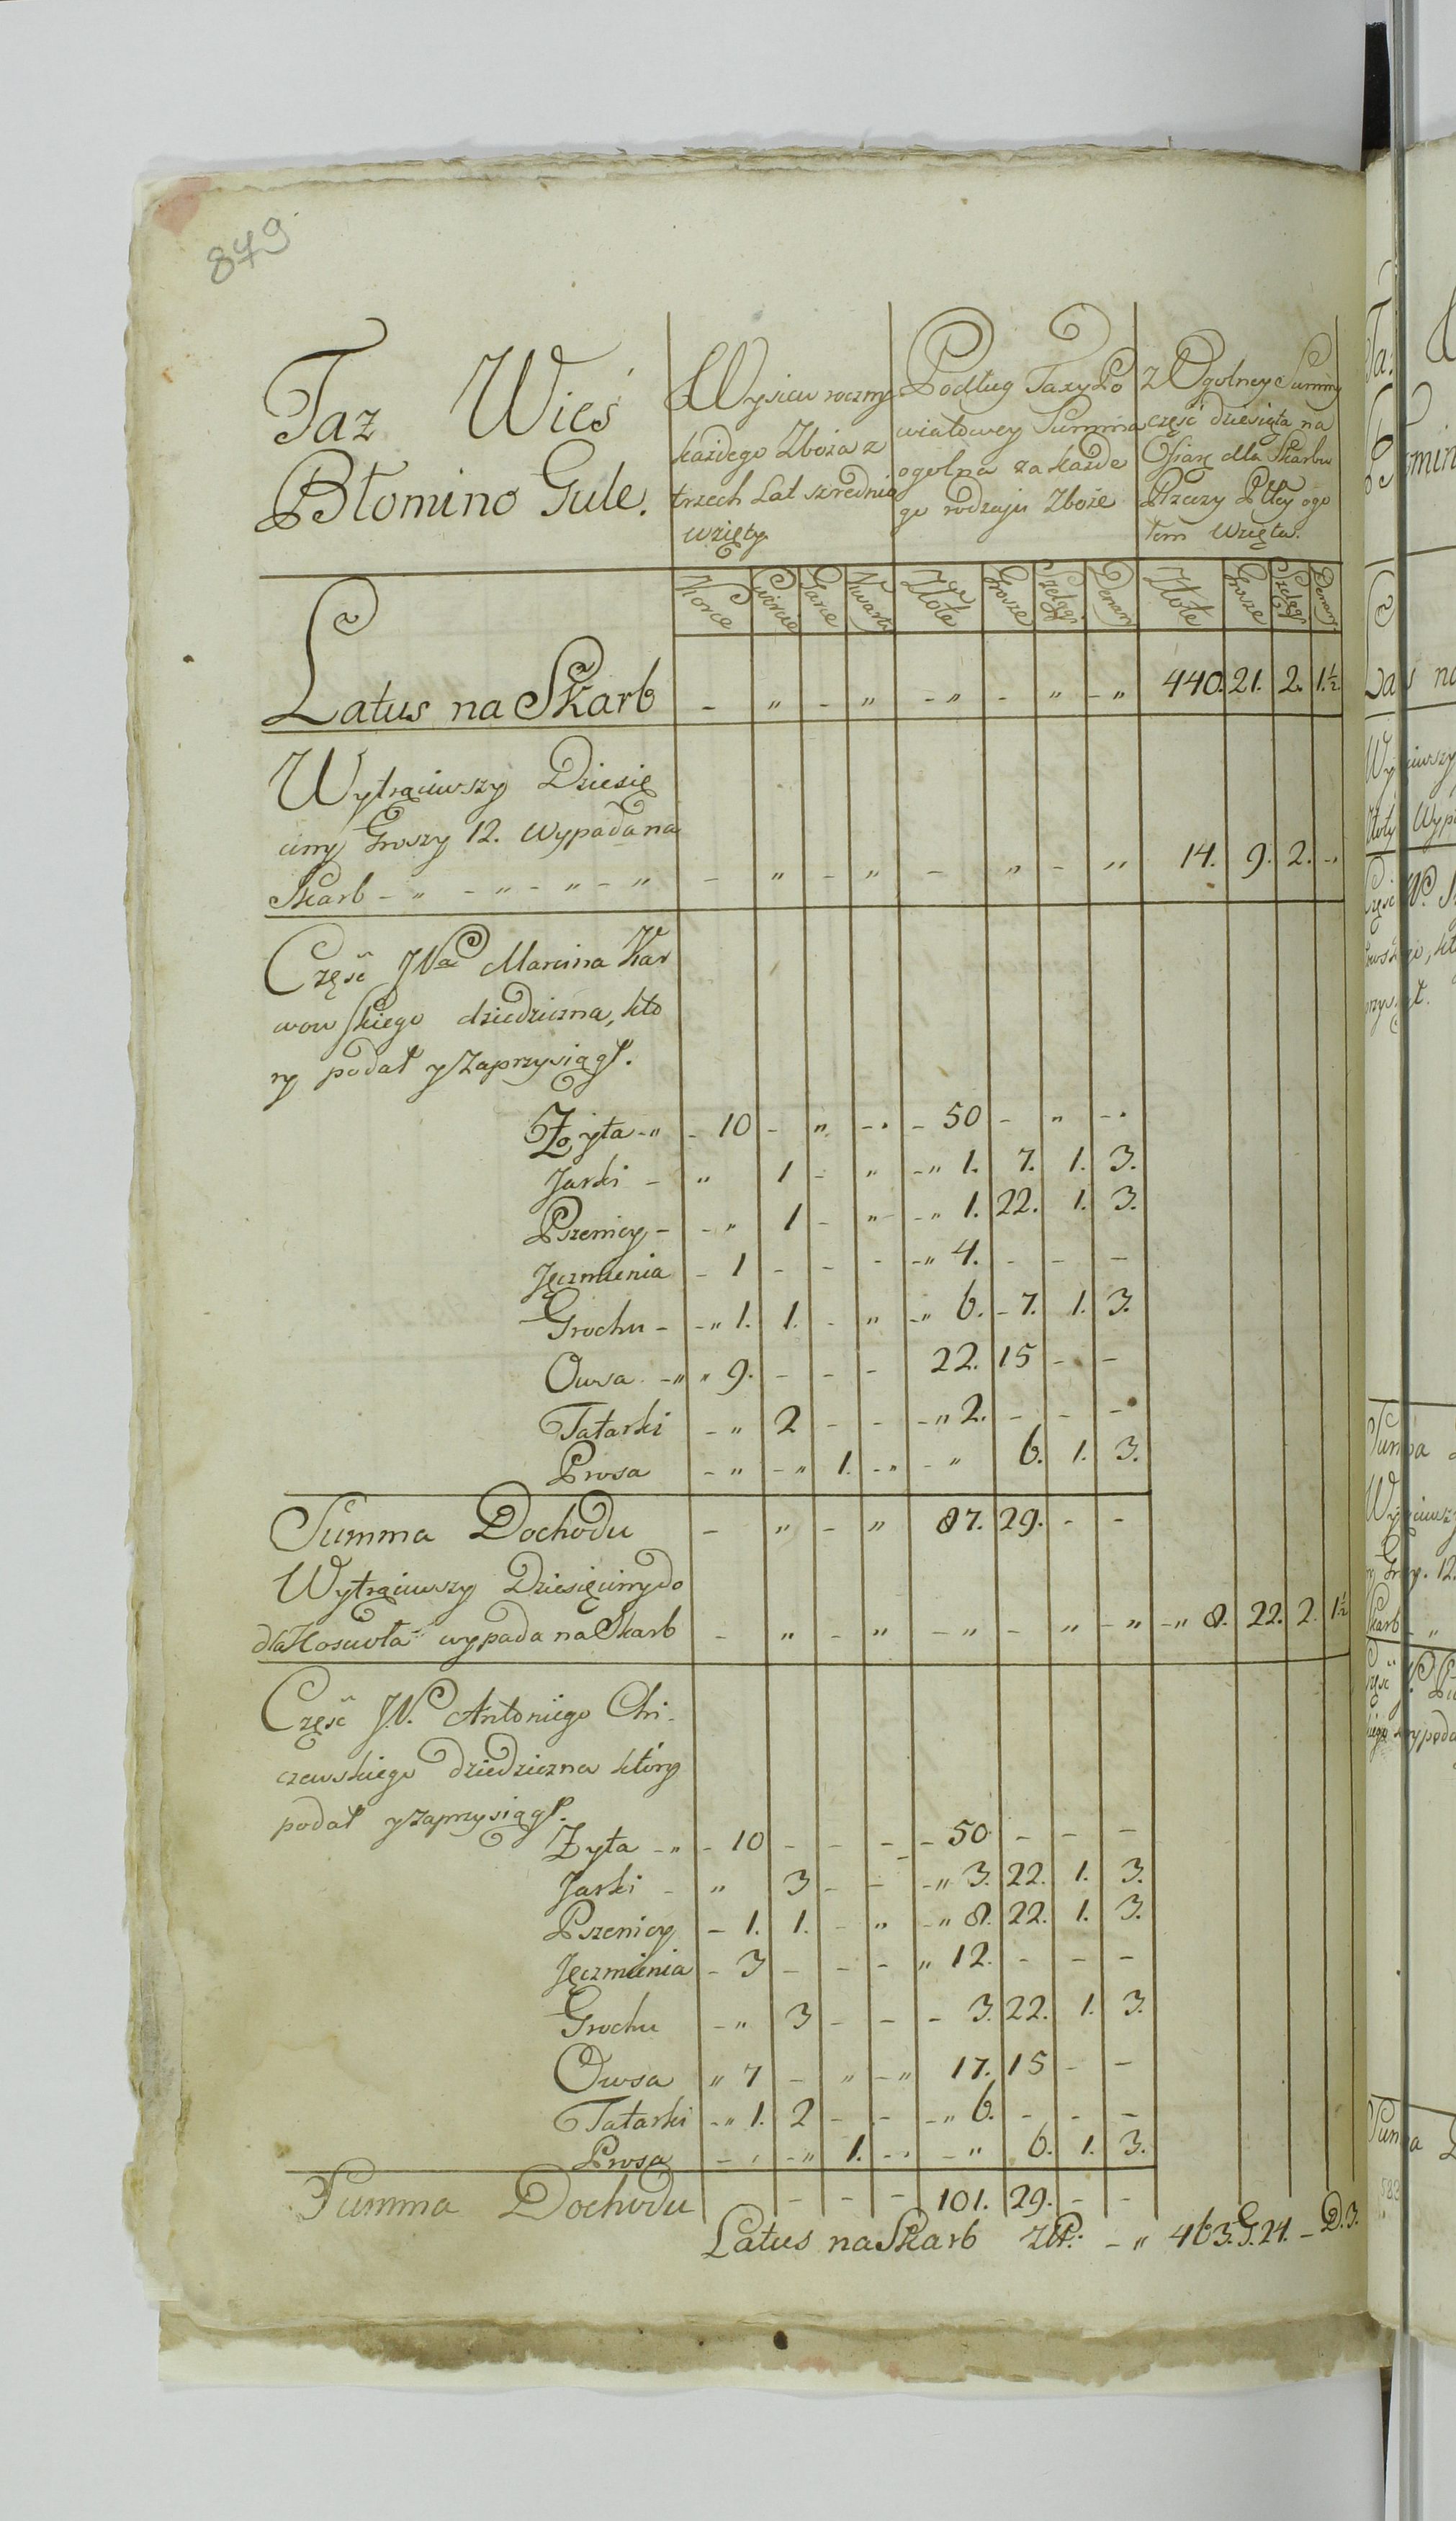 879
Taz Wieś
Błomino Gule.
Wysiew roczny
każdego Zboża z
trzech Lat szrednio
wzięty
Podług Taxy Po
wiatowey Summa
ogolna za każde
go rodzaju Zboże
z Ogolney Summy
część dziesiąta na
Ofiarę dla Skarbu
Rzeczy Pltey ogo
łem wzięta.
Korce Ćwierci Garce Kwarty Złote Grosze Szelągi Denary Złote Grosze Szelągi Denary
Latus na Skarb - „ - „ - „ - „ - „ 440. 21. 2. 1.½
Wytrąciwszy Dziesię
ciny Groszy 12. wypada na
Skarb - „ - „ - „ - „ - „ - „ - „ - „ 14. 9. 2. -„
Część JWa Marcina Kar
wowskiego dziedziczna, kto
ry podał y zaprzysiągł.
Żyta - „ - 10 - „ - . - 50 - „ - .
Jarki - „ 1 - „ - „ 1. 7. 1. 3.
Pszenicy - - „ 1 - „ - „ 1. 22. 1. 3.
Jęczmienia - 1 - - - - „ 4. - - -
Grochu - - „ 1. 1. - „ - „ 6. - 7. 1. 3.
Owsa - „ „ 9. - - - 22. 15 - -
Tatarki - „ 2 - - - „ 2. - - -
Prosa - „ - „ 1. - „ - „ 6. 1. 3.
Summa Dochodu - „ - „ 87. 29. - -
Wytrąciwszy Dziesięciny do
dla Koscioła wypada na Skarb - „ - „ - „ - „ - „ - „ 8. 22. 2. 1½
Część JW. Antoniego Chi-
czewskiego dziedziczna który
podał y zaprzysiągł.
Żyta - „ - 10 - - - - 50 - - -
Jarki - „ 3 - - - „ 3. 22. 1. 3.
Pszenicy - 1. 1. - „ - „ 8. 22. 1. 3.
Jęczmienia - 3 - - - „ 12. - - -
Grochu - „ 3 - - - 3. 22. 1. 3.
Owsa „ 7 - „ - „ 17. 15 - -
Tatarki - „ 1. 2 - - - „ 6. - - -
Prosa - „ - „ 1. - „ - „ 6. 1. 3.
Summa Dochodu - - - 101. 29. - -
Latus na Skarb złP. - „ 463. G. 24. - D. 3.